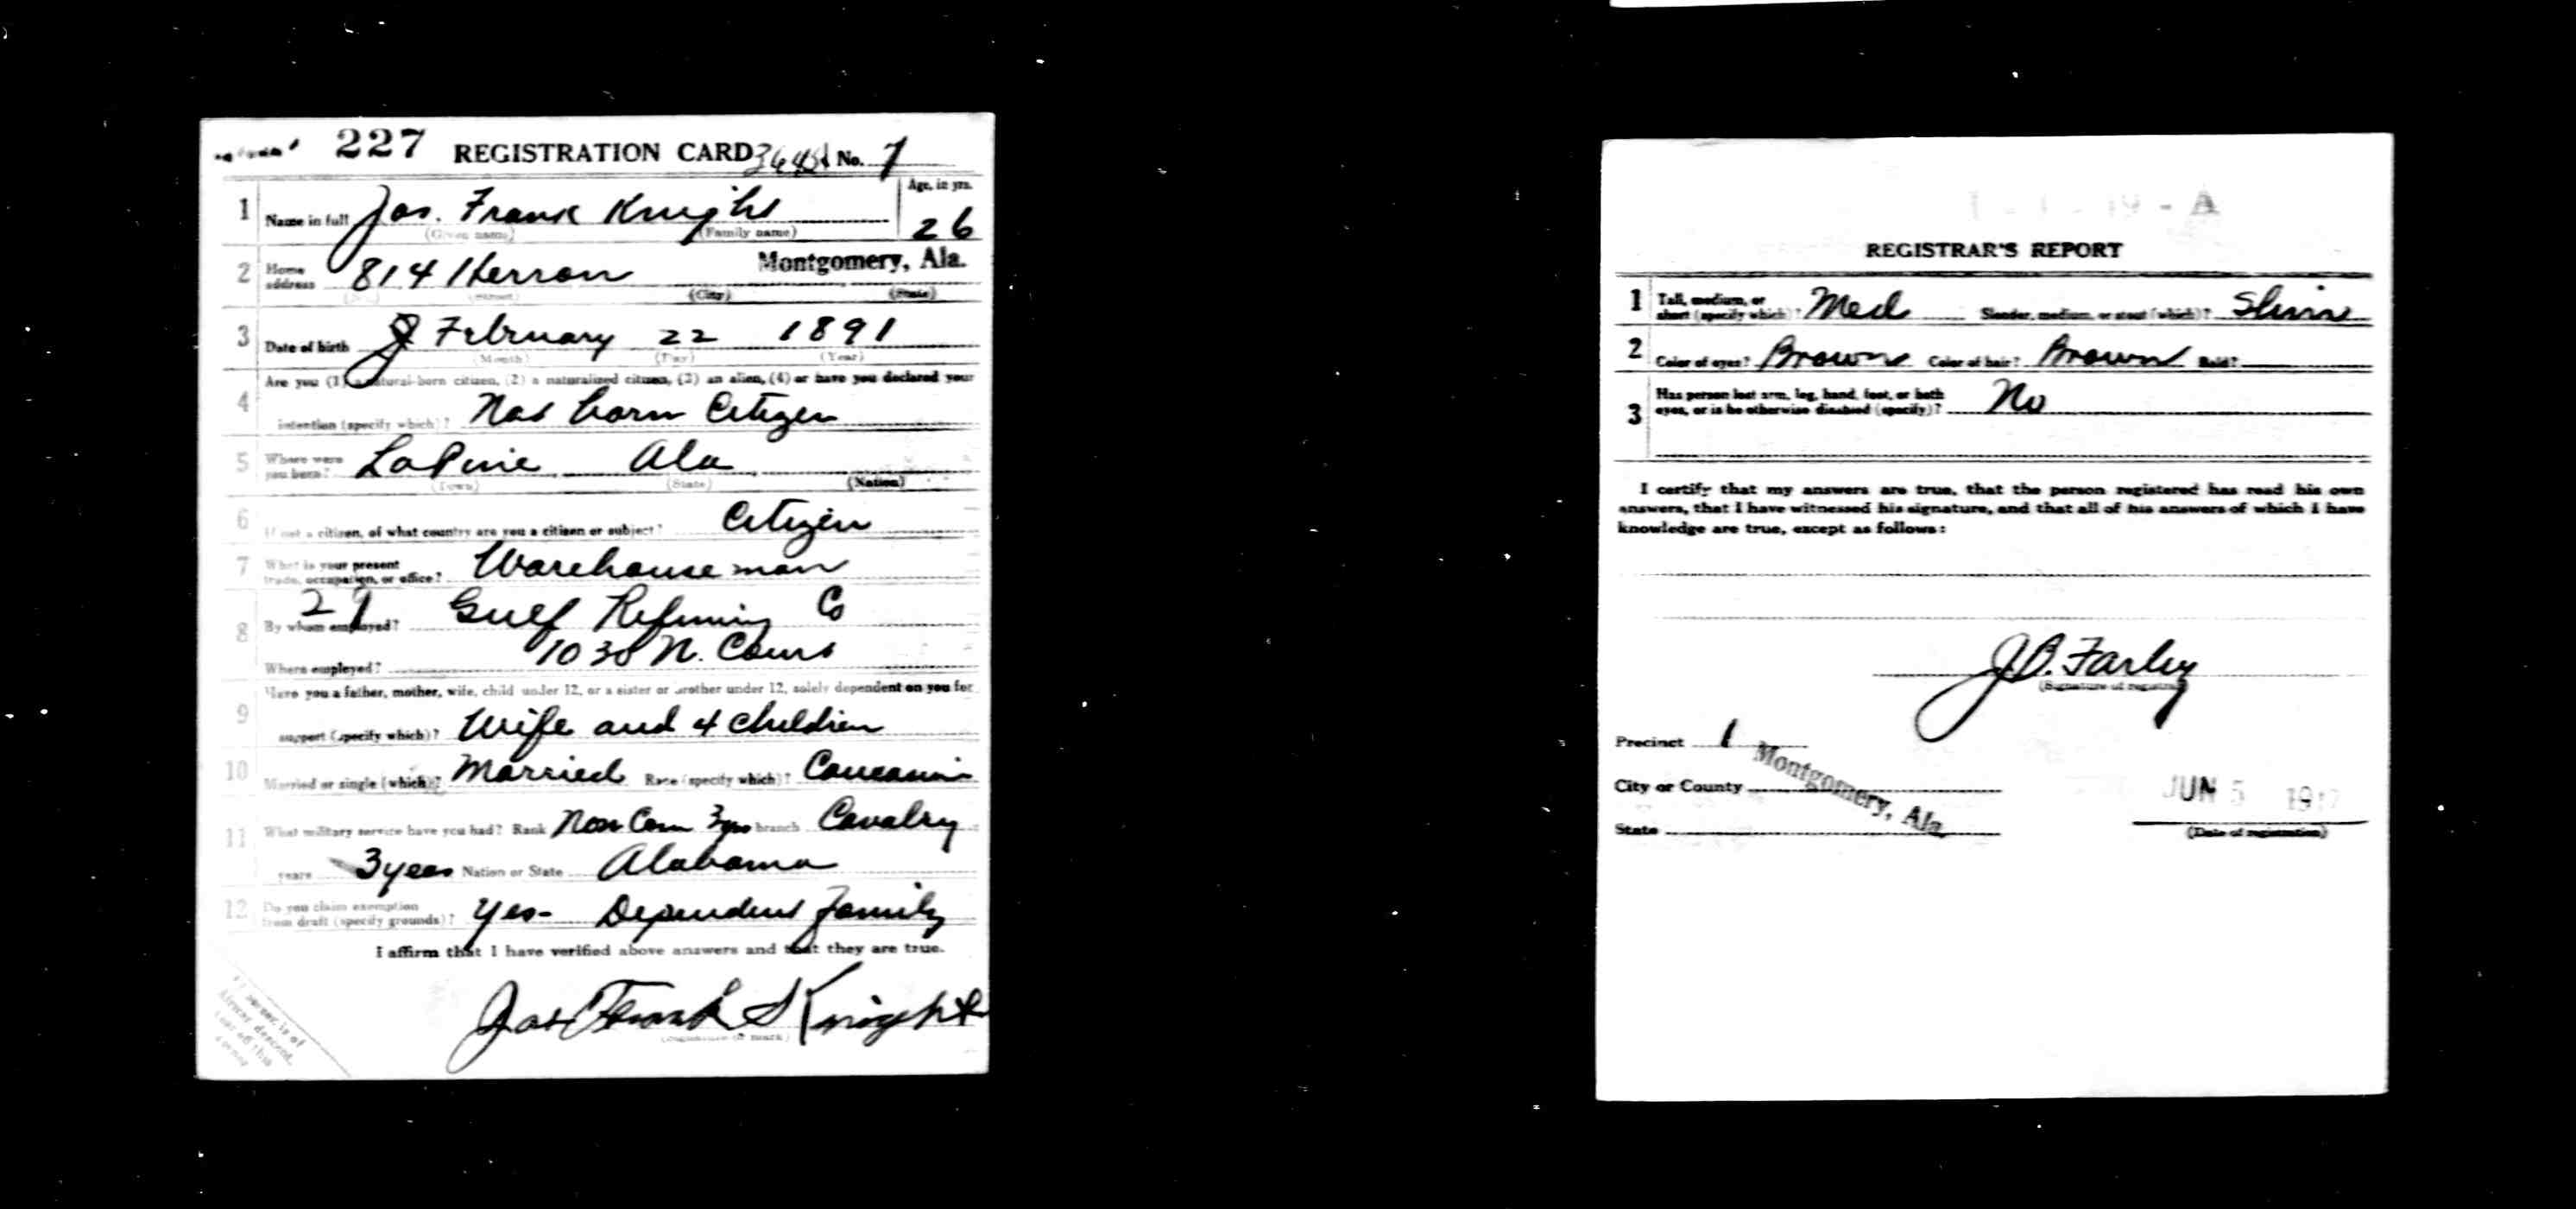 227 REGISTRATION CARD No. 7
1 Name in full Jas. Frank Knight Age, in yrs.
(Given name) (Family name) 26
2 Home address 814 Herron Montgomery, Ala.
(No.) (Street) (City) (State)
3 Date of birth February 22 1891
(Month) (Day) (Year)
Are you (1) a natural-born citizen, (2) a naturalized citizen, (3) an alien, (4) or have you declared your
4 intention (specify which)? Nat born Citizen
5 Where were you born? LaPine Ala
(Town) (State) (Nation)
6 If not a citizen, of what country are you a citizen or subject? Citizen
7 What is your present trade, occupation, or office? Warehouse man
29
8 By whom employed? Gulf Refining Co
Where employed? 1030 N. Court
Have you a father, mother, wife, child under 12, or a sister or brother under 12, solely dependent on you for
9 support (specify which)? Wife and 4 children
10 Married or single (which)? Married Race (specify which)? Caucasian
11 What military service have you had? Rank Non Com 3yrs branch Cavalry
years 3 years Nation or State Alabama
12 Do you claim exemption from draft (specify grounds)? Yes- Dependent family
I affirm that I have verified above answers and that they are true.
Jas Frank Knight
(Signature or mark)
If person is of
African descent,
tear off this
corner
1-1-19-A
REGISTRAR'S REPORT
1 Tall, medium, or short (specify which)? Med Slender, medium, or stout (which)? Slim
2 Color of eyes? Brown Color of hair? Brown Bald?
3 Has person lost arm, leg, hand, foot, or both eyes, or is he otherwise disabled (specify)? No
I certify that my answers are true, that the person registered has read his own
answers, that I have witnessed his signature, and that all of his answers of which I have
knowledge are true, except as follows:
Farley
(Signature of registrar)
Precinct 1
City or County Montgomery, Ala.
State
JUN 5 1917
(Date of registration)